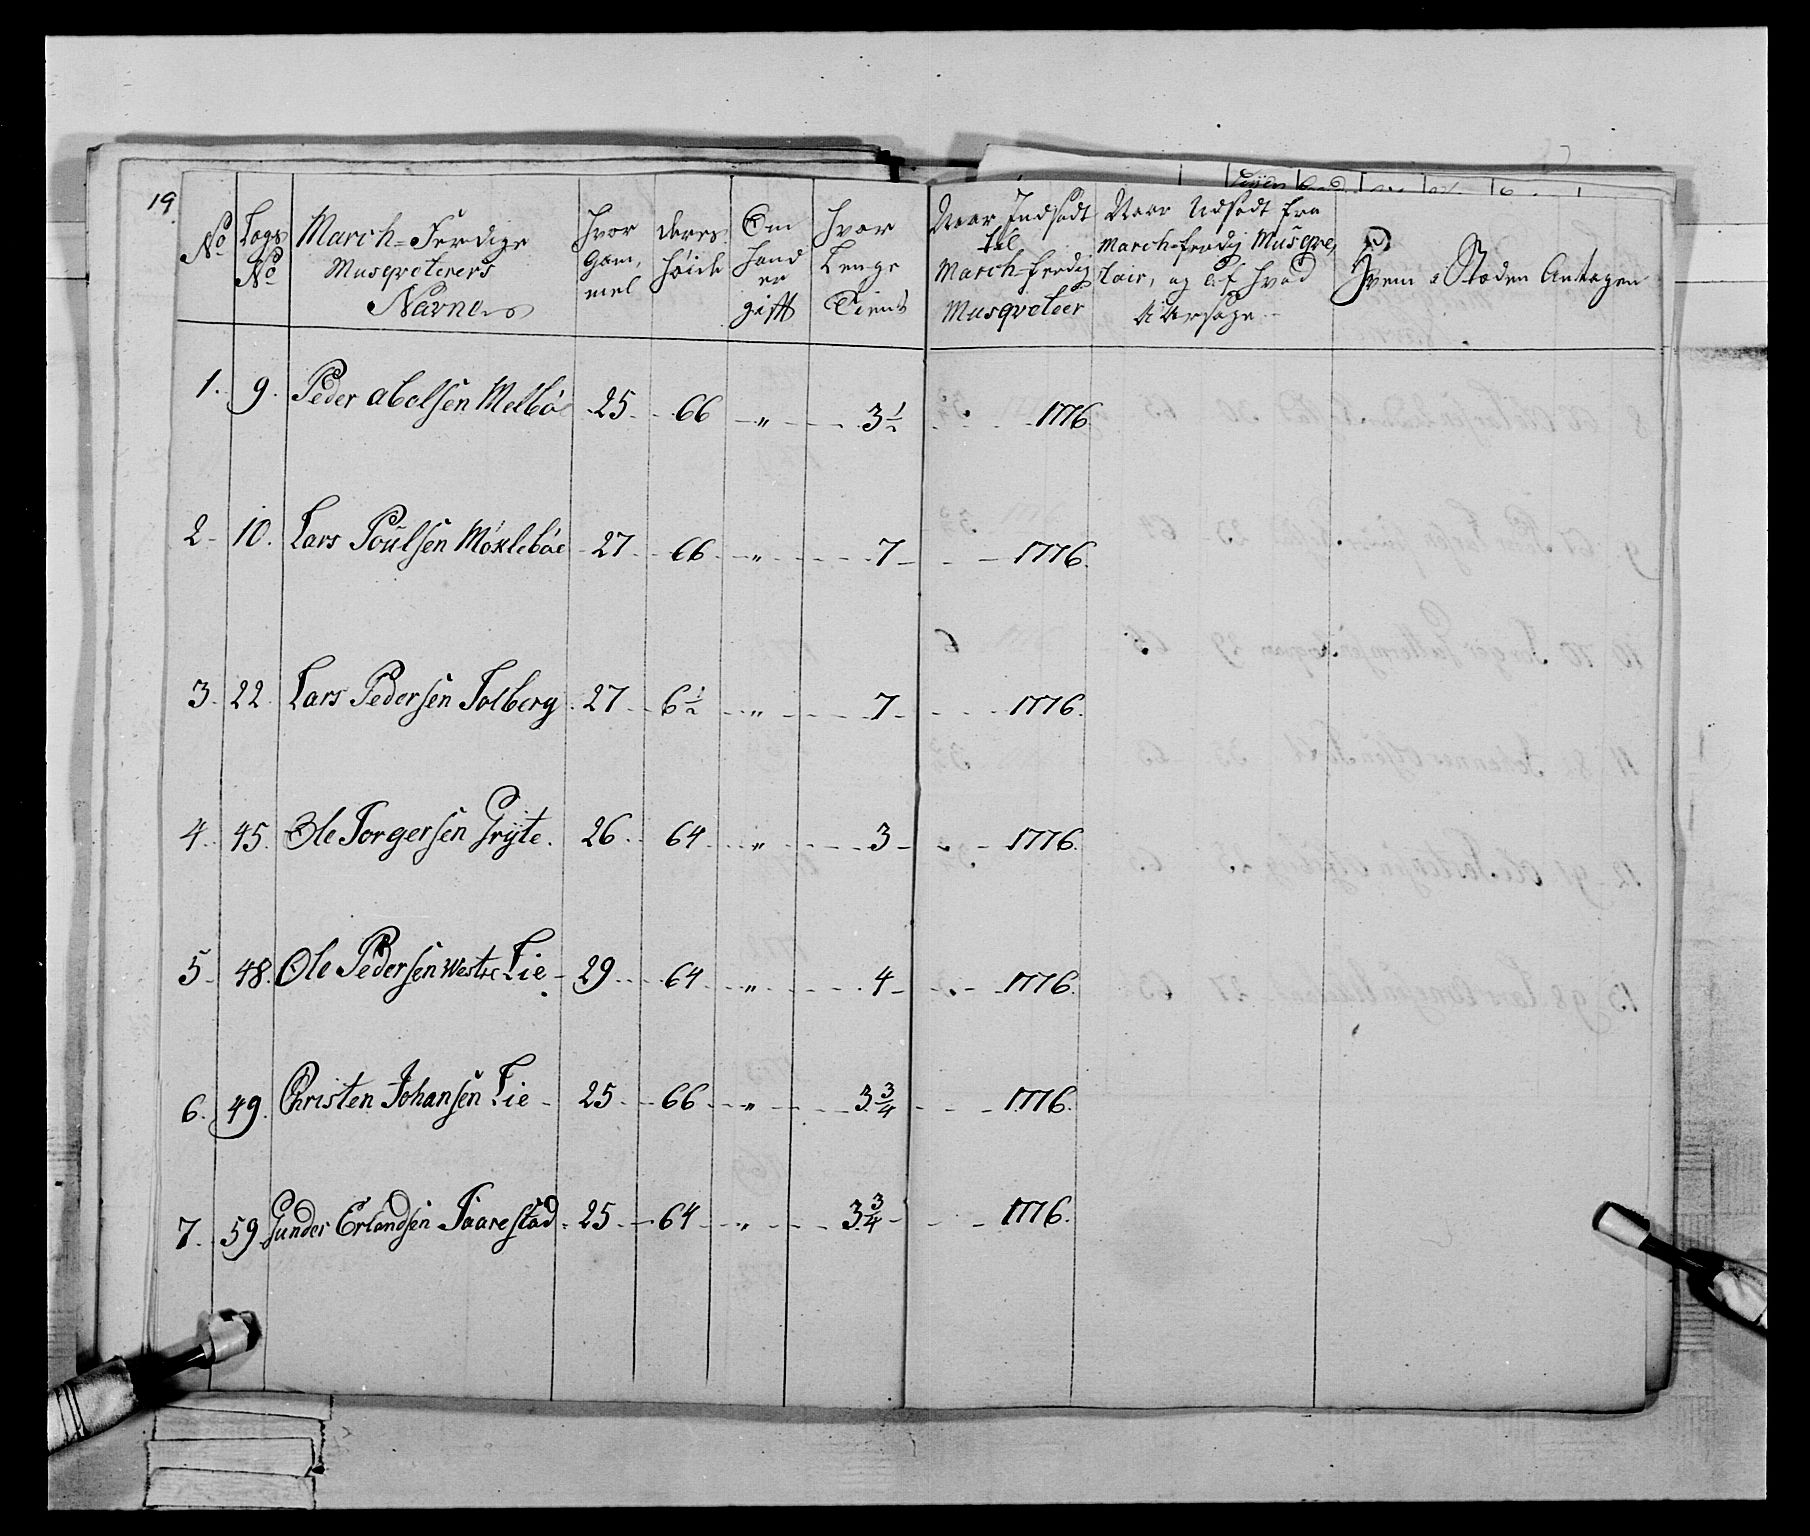 19.
No
Lægs No
March-Ferdige Musqveterers Navne
Hvor gam,, mel
deres höide
Om hand er gift
Hvor Lenge Tient
Naar Indsadt til March-ferdig Musqveteer
Naar Udsadt fra March-ferdig Musqve,, teer, og af hvad Aarsage
Hvem i Stæden Antagen
1. 9. Peder Abelsen Melbøe 25 66 " 3 1/2 1776.
2 10. Lars Poulsen Moxlebøe 27 66 " 7 1776.
3. 22. Lars Pedersen Solberg 27 6 1/2 " 7 1776.
4. 45. Ole Torgersen Gryte. 26 64 " 3 1776.
5 48. Ole Pedersen Westre Lie 29 64 " 4 1776.
6. 49. Christen Johansen Lie 25 66 " 3 3/4 1776.
7. 59 Gunder Erlandsen Taarestad 25 64 " 3 3/4 1776.